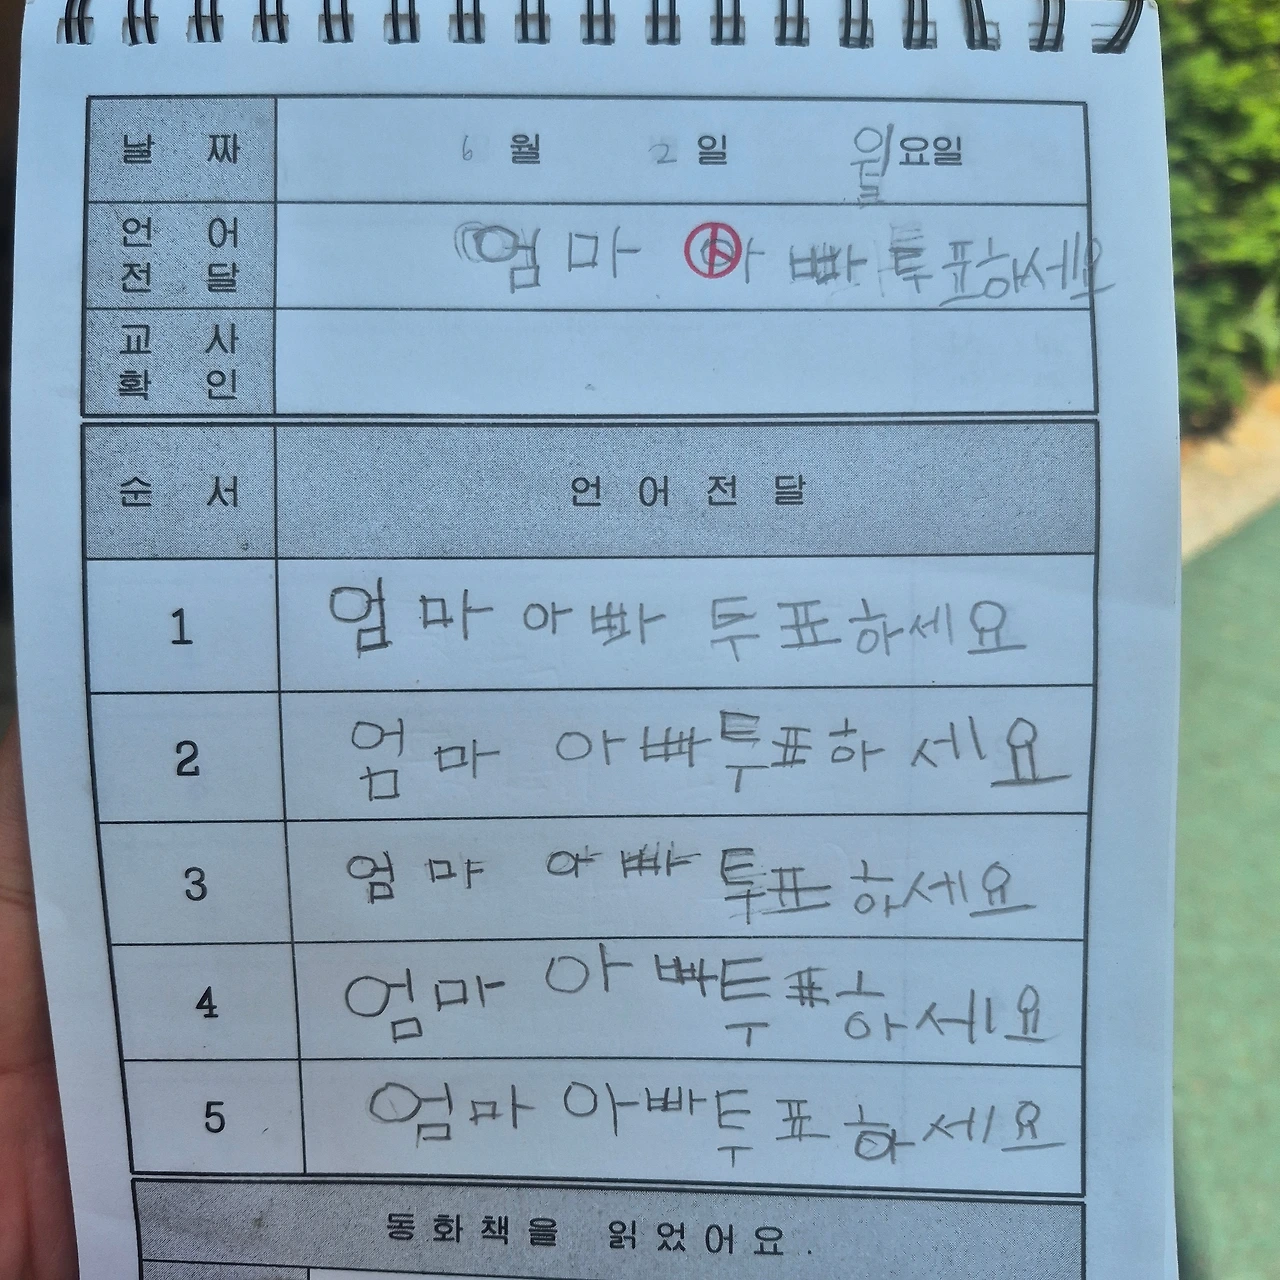 날 짜 6 월 2 일 월요일
언 어 전 달 엄마 아빠 투표하세요
교 사 확 인
순 서 언 어 전 달
1 엄마 아빠 투표하세요
2 엄마 아빠투표하세요
3 엄마 아빠 투표하세요
4 엄마 아빠투표하세요
5 엄마 아빠투표하세요
동화책을 읽었어요.